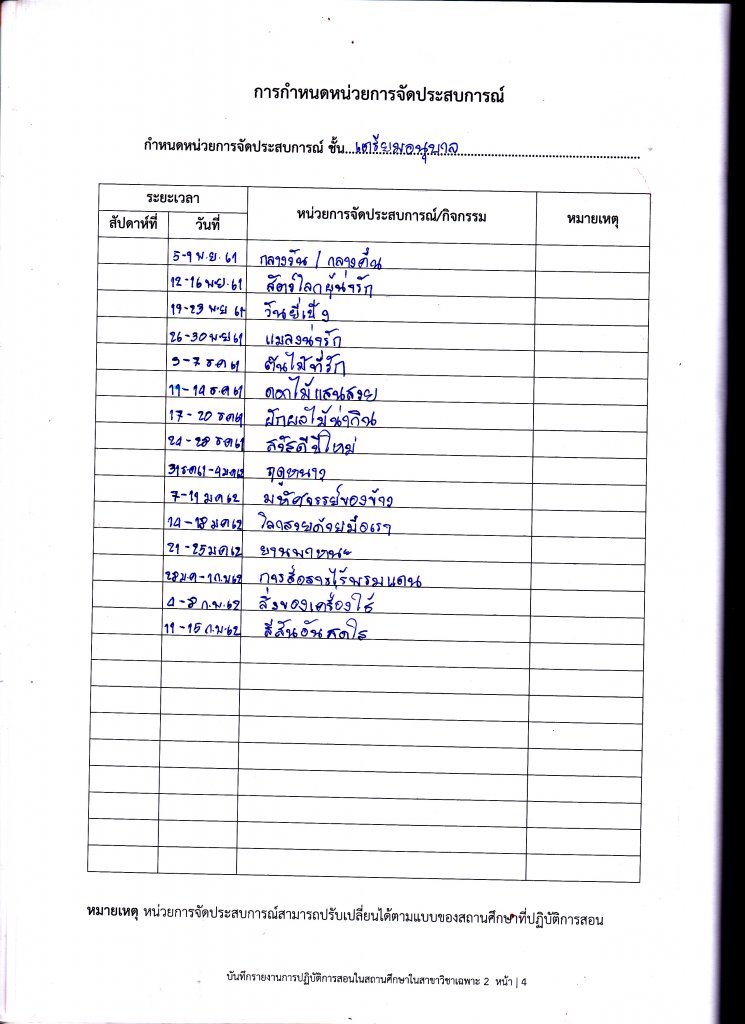 การกำหนดหน่วยการจัดประสบการณ์
กำหนดหน่วยการจัดประสบการณ์ ชั้น...เตรียมอนุบาล
ระยะเวลา
หน่วยการจัดประสบการณ์/กิจกรรม
หมายเหตุ
สัปดาห์ที่ วันที่
5-9 พ.ย. 61 กลางวัน / กลางคืน
12-16 พ.ย. 61 สัตว์โลกผู้น่ารัก
19-23 พ.ย 61 วันยี่เป็ง
26-30 พ.ย 61 แมลงน่ารัก
3-7 ธ.ค 61 ต้นไม้ที่รัก
11-14 ธ.ค 61 ดอกไม้แสนสวย
17-20 ธ.ค 61 ผักผลไม้น่ากิน
24-28 ธ.ค 61 สวัสดีปีใหม่
31 ธ.ค 61-4 ม.ค 62 ฤดูหนาว
7-11 ม.ค 62 มหัศจรรย์ของข้าว
14-18 ม.ค 62 โลกสวยด้วยมือเรา
21-25 ม.ค 62 ยานพาหนะ
28 ม.ค-1 ก.พ 62 การสื่อสารไร้พรมแดน
4-8 ก.พ. 62 สิ่งของเครื่องใช้
11-15 ก.พ. 62 สีสันอันสดใส
หมายเหตุ หน่วยการจัดประสบการณ์สามารถปรับเปลี่ยนได้ตามแบบของสถานศึกษาที่ปฏิบัติการสอน
บันทึกรายงานการปฏิบัติการสอนในสถานศึกษาในสาขาวิชาเฉพาะ 2 หน้า | 4